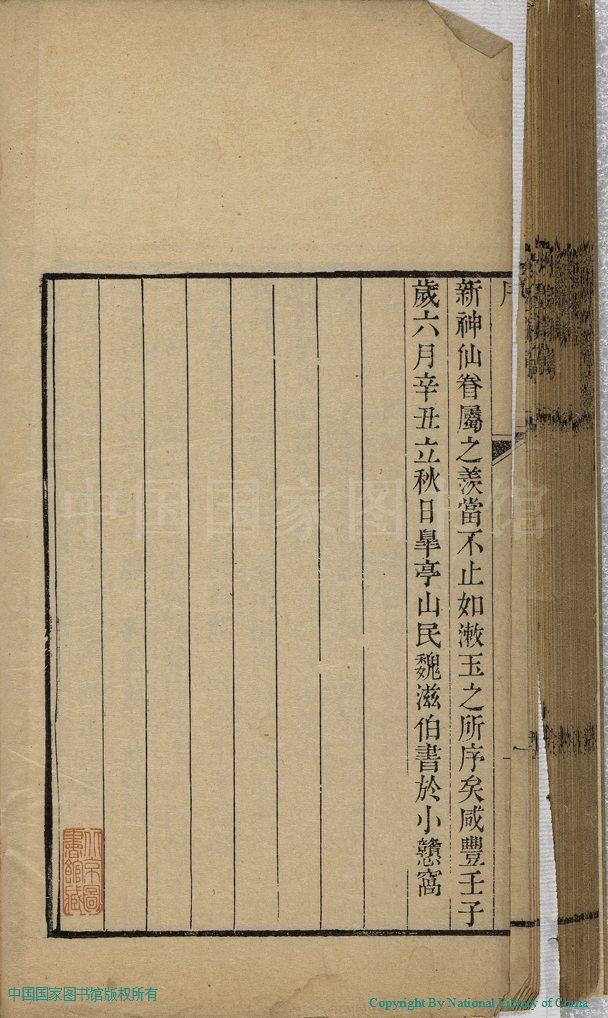 新神仙眷屬之羨當不止如漱玉之所序矣咸豐壬子
歲六月辛丑立秋日皐亭山民魏滋伯書於小戇窩
中国国家图书馆
北京圖書館藏
中国国家图书馆版权所有
Copyright By National Library of China